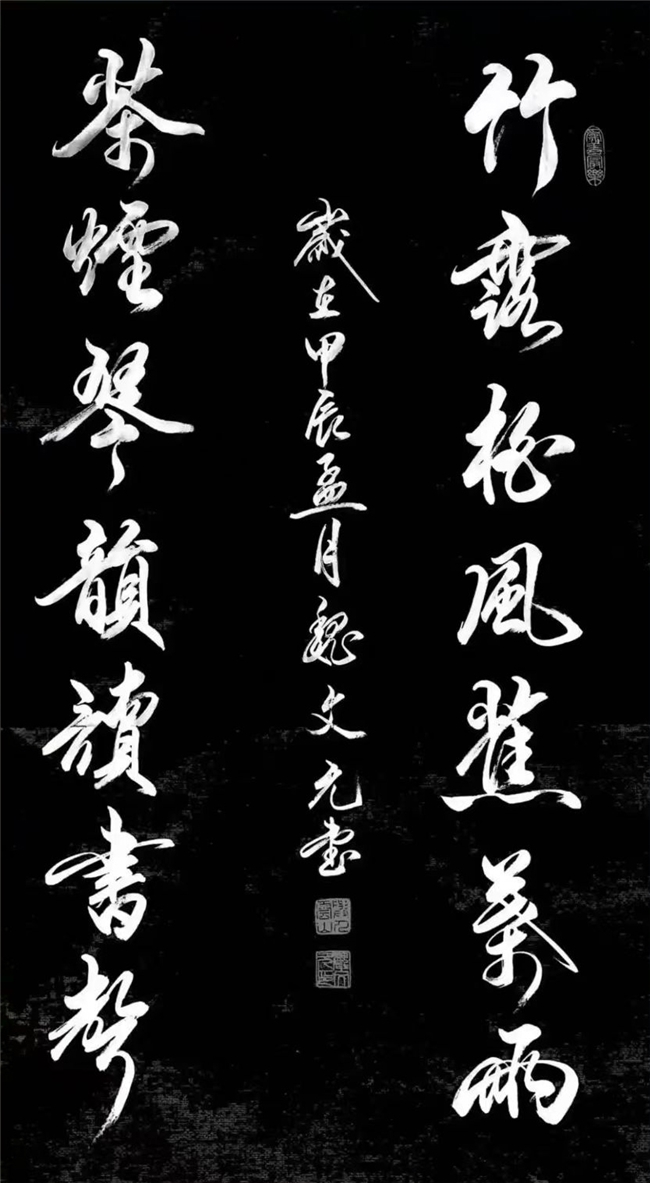 竹露松風蕉葉雨
茶煙琴韻讀書聲
歲在甲辰孟月魏文元書